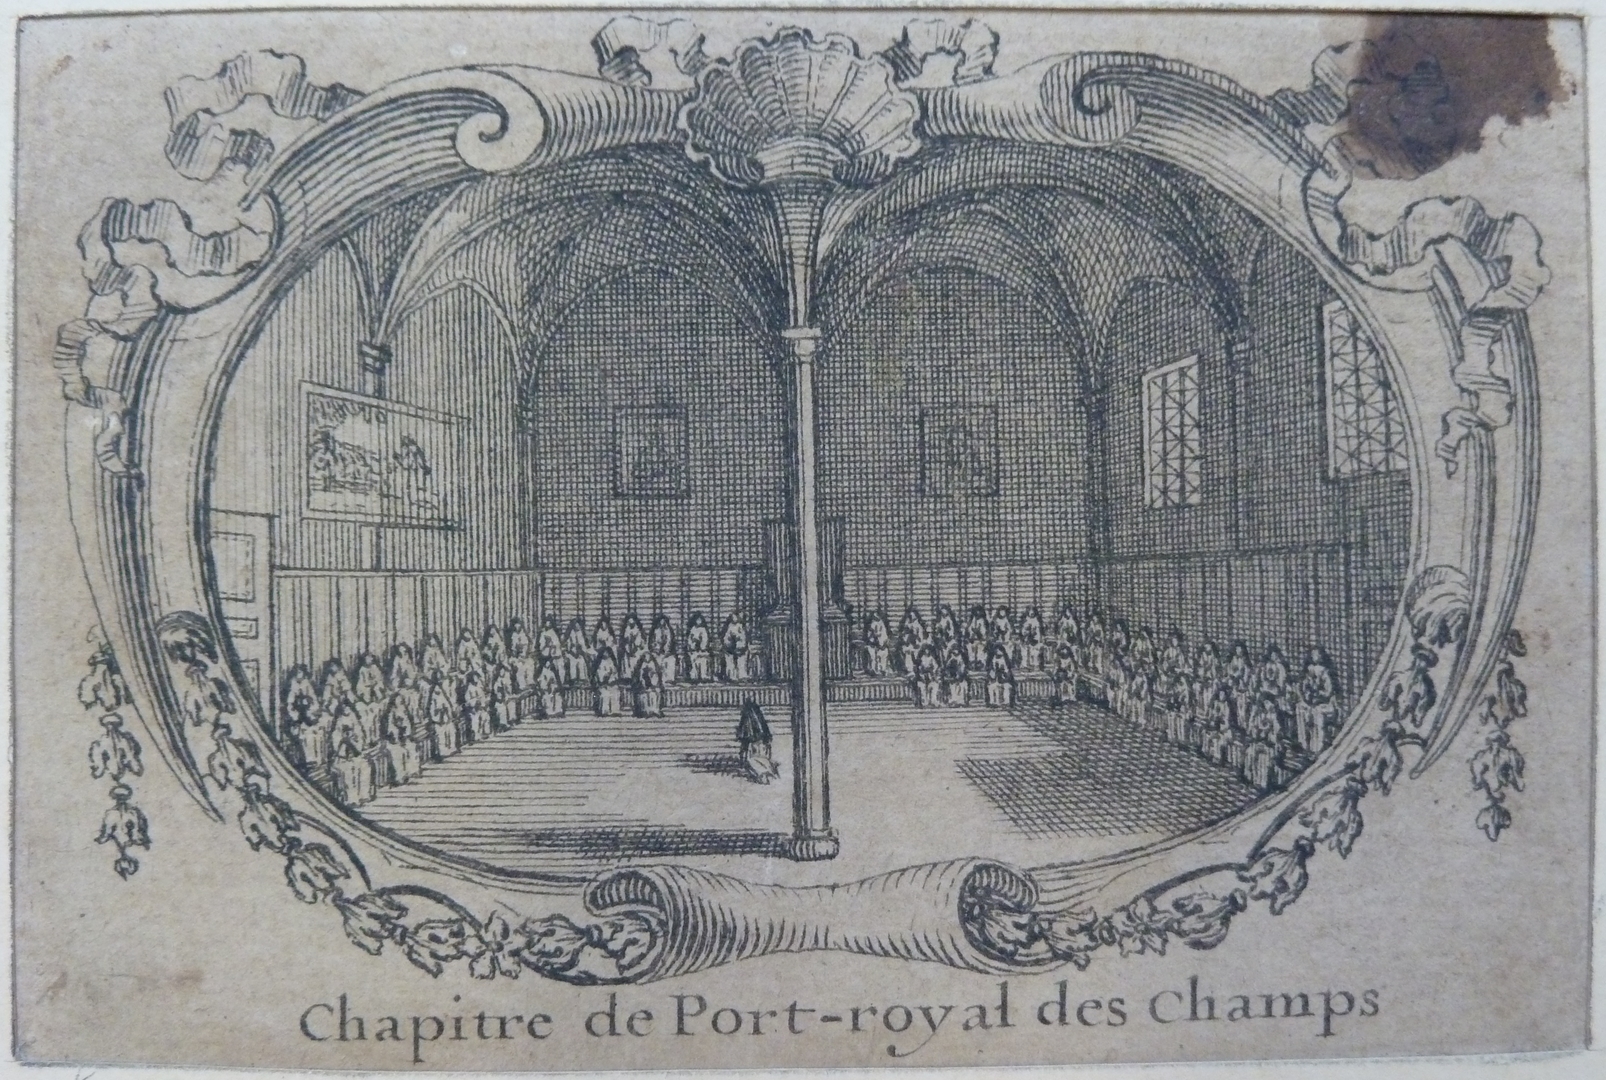 Chapitre de Port-royal des Champs